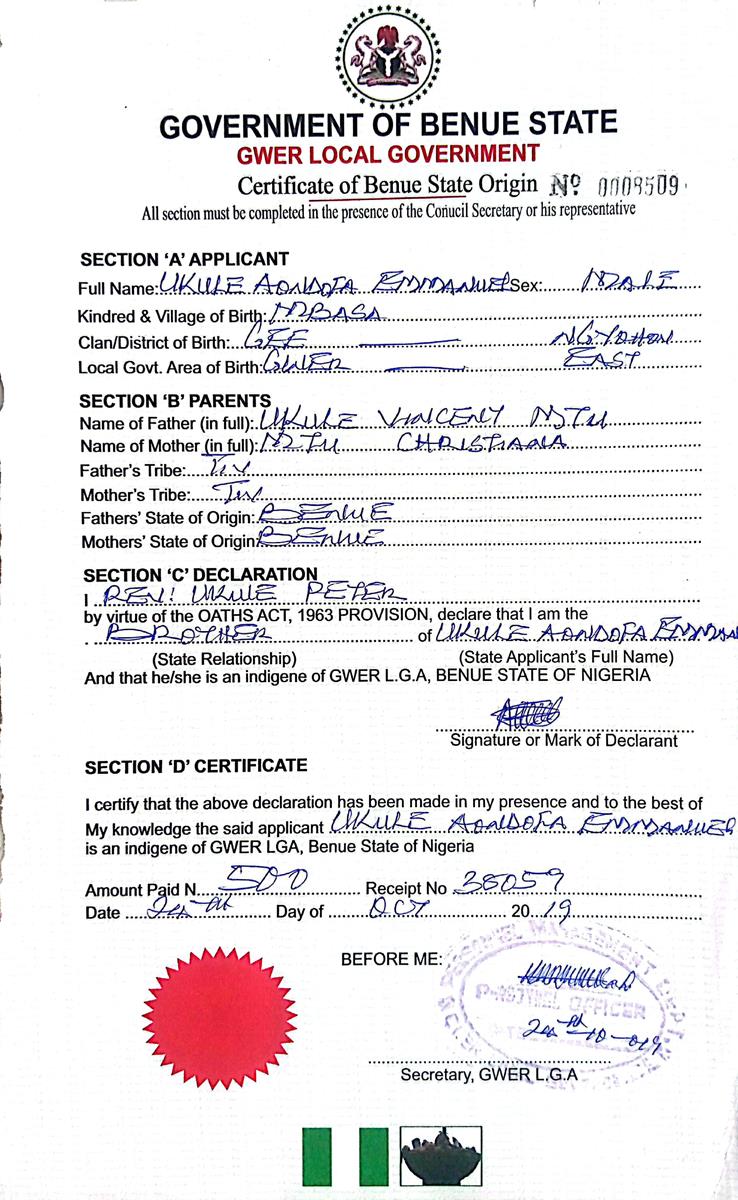 GOVERNMENT OF BENUE STATE
GWER LOCAL GOVERNMENT
Certificate of Benue State Origin Nº 0009509
All section must be completed in the presence of the Conucil Secretary or his representative
SECTION ‘A’ APPLICANT
Full Name: UKULE AONDOFA EMMANUEL Sex: MALE
Kindred & Village of Birth: MBASA
Clan/District of Birth: GEE NGYOHOV
Local Govt. Area of Birth: GWER EAST
SECTION ‘B’ PARENTS
Name of Father (in full): UKULE VINCENT MTU
Name of Mother (in full): MTU CHRISTIANA
Father's Tribe: Tiv
Mother's Tribe: Tiv
Fathers' State of Origin: BENUE
Mothers' State of Origin: BENUE
SECTION ‘C’ DECLARATION
I REV! UKULE PETER
by virtue of the OATHS ACT, 1963 PROVISION, declare that I am the
BROTHER of UKULE AONDOFA EMMAN
(State Relationship) (State Applicant's Full Name)
And that he/she is an indigene of GWER L.G.A, BENUE STATE OF NIGERIA
Signature or Mark of Declarant
SECTION ‘D’ CERTIFICATE
I certify that the above declaration has been made in my presence and to the best of
My knowledge the said applicant UKULE AONDOFA EMMANUEL
is an indigene of GWER LGA, Benue State of Nigeria
Amount Paid N 500 Receipt No 38059
Date Day of OCT 2019
BEFORE ME:
PERSONNEL MANAGEMENT DEPT
OFFICER
Secretary, GWER L.G.A